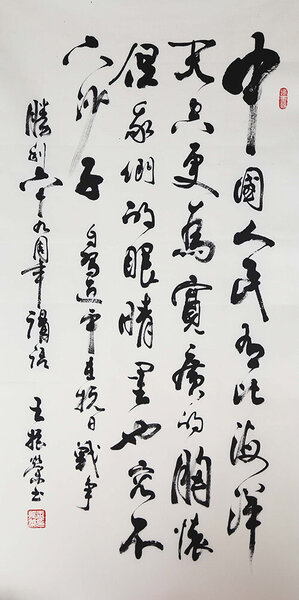 中國人民有比海洋
天空更為寬廣的胸懷
但我們的眼睛里也容不
下沙子 習近平在抗日戰爭
勝利六十九周年講話 王振榮書